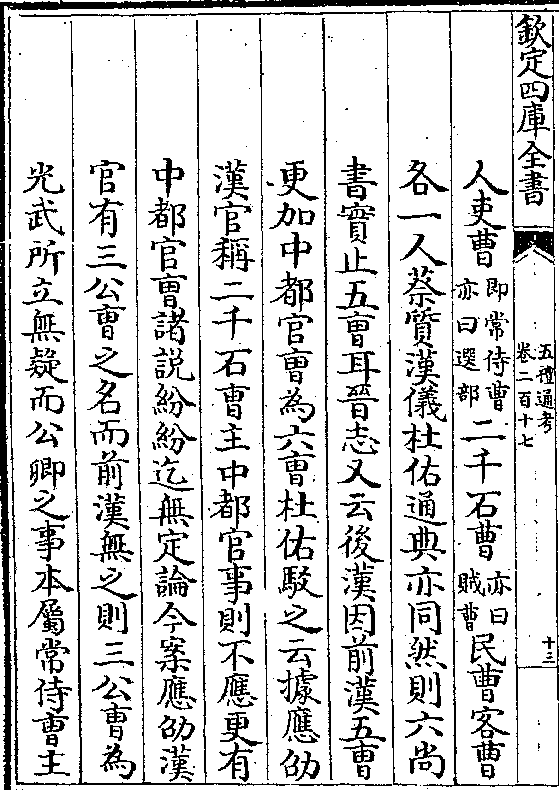 欽定四庫全書
五禮通考
卷二百十七
十三
人吏曹即常侍曹亦曰選部二千石曹亦曰賊曹民曹客曹
各一人蔡質漢儀杜佑通典亦同然則六尚
書實止五曹耳晉志又云後漢因前漢五曹
更加中都官曹為六曹杜佑駁之云據應劭
漢官稱二千石曹主中都官事則不應更有
中都官曹諸說紛紛迄無定論今案應劭漢
官有三公曹之名而前漢無之則三公曹為
光武所立無疑而公卿之事本屬常侍曹主